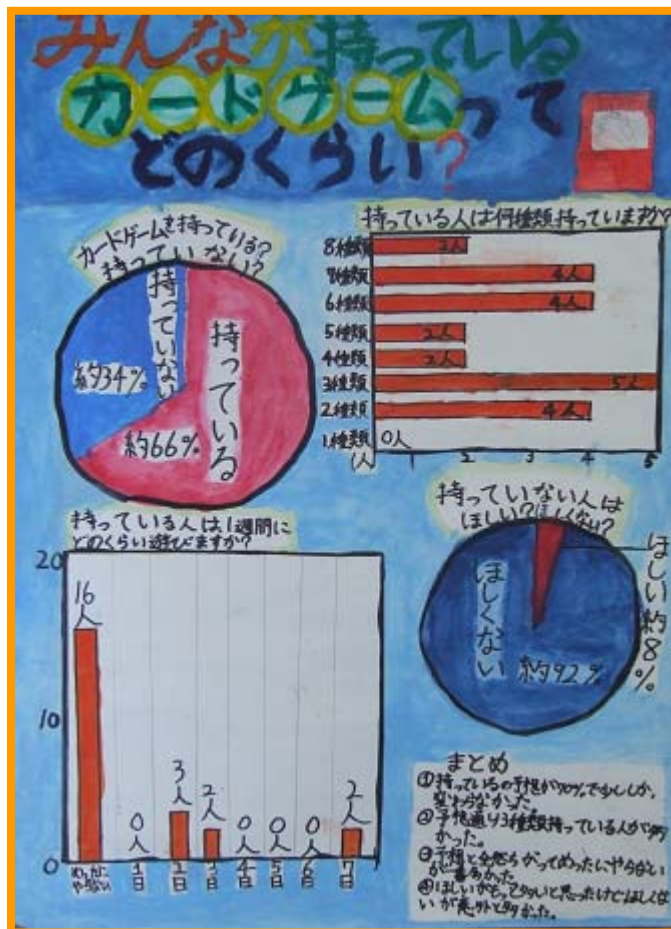 みんなが持っている
カードゲームって
どのくらい?
カードゲームを持っている?
持っていない?
持っていない
約34%
持っている
約66%
持っている人は何種類持っていますか?
8種類 2人
7種類 4人
6種類 4人
5種類 2人
4種類 2人
3種類 5人
2種類 4人
1種類 0人
(人 1 2 3 4 5
持っている人は1週間に
どのくらい遊びますか?
20
10
0
16人
0人
3人
2人
0人
0人
0人
2人
めったにやらない
1日
2日
3日
4日
5日
6日
7日
持っていない人は
ほしい?ほしくない?
ほしい約8%
ほしくない
約92%
まとめ
①持っているの予想が70%で少ししか
変わらなかった。
②予想通り3種類持っている人が多
かった。
③予想と全然ちがってめったにやらない
が一番多かった。
④ほしいがもっと多いと思ったけどほしくな
いが意外と多かった。